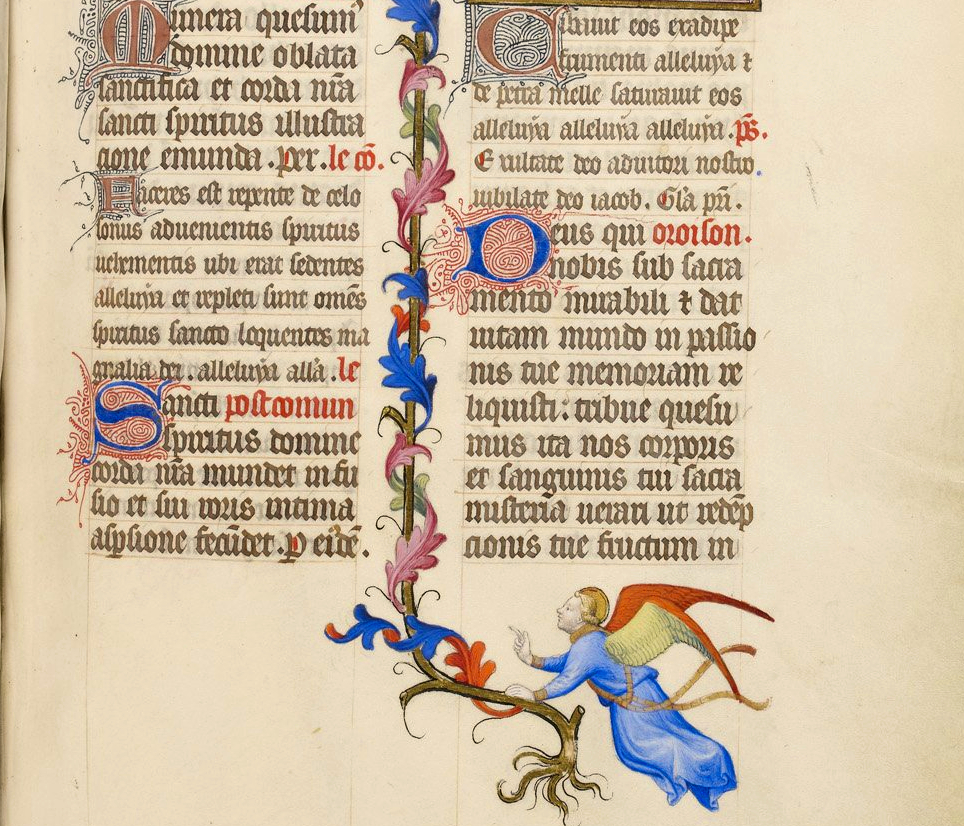 Munera quesum'
domine oblata
sanctifica et corda nr̄a
sancti spiritus illustra
cione emunda . per . le cō.
Faceres est repente de celo
sonus aduenientis spiritus
uehementis ubi erat sedentes
alleluya et repleti sunt omēs
spiritus sancto loquentes ma
gnalia dei . alleluya allā . le
Sancti postcomun
spiritus domine
corda nr̄a mundet infu
sio et sui roris intima
aspsione fecūdet . p eidē .
Cibauit eos exadipe
frumenti alleluya ⁊
de petra melle saturauit eos
alleluya alleluya alleluya . ps̄.
Exultate deo adiutori nostro.
iubilate deo iacob . Glā pr̄i .
Deus qui oroison .
nobis sub sacra
mento mirabili ⁊ dat
uitam mundo in passio
nis tue memoriam re
liquisti : tribue quesu
mus ita nos corporis
et sanguinis tui sacra
misteria uerari ut redēp
cionis tue fructum in